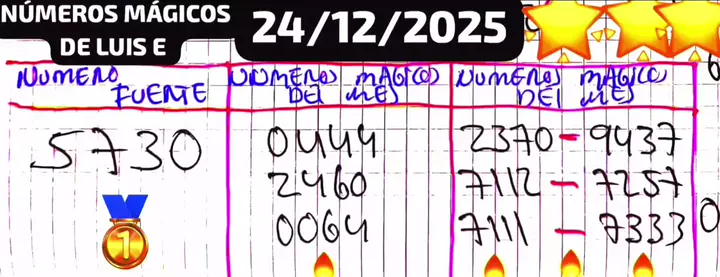 NÚMEROS MÁGICOS
DE LUIS E
24/12/2025
NUMERO
FUENTE
NUMEROS MAGICO
DEL MES
NUMEROS MAGICO
DEL MES
5730
0444
2460
0064
2370 - 9437
7112 - 7257
7111 - 7333
1
6
0